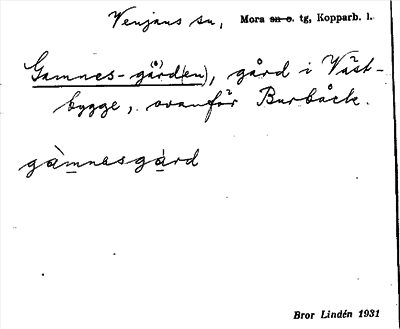 Venjans sn, Mora sn o. tg, Kopparb. l.
Gamnes-gård(en), gård i Väst-
bygge, ovanför Burbäck.
gàmnasgàrd
Bror Lindén 1931